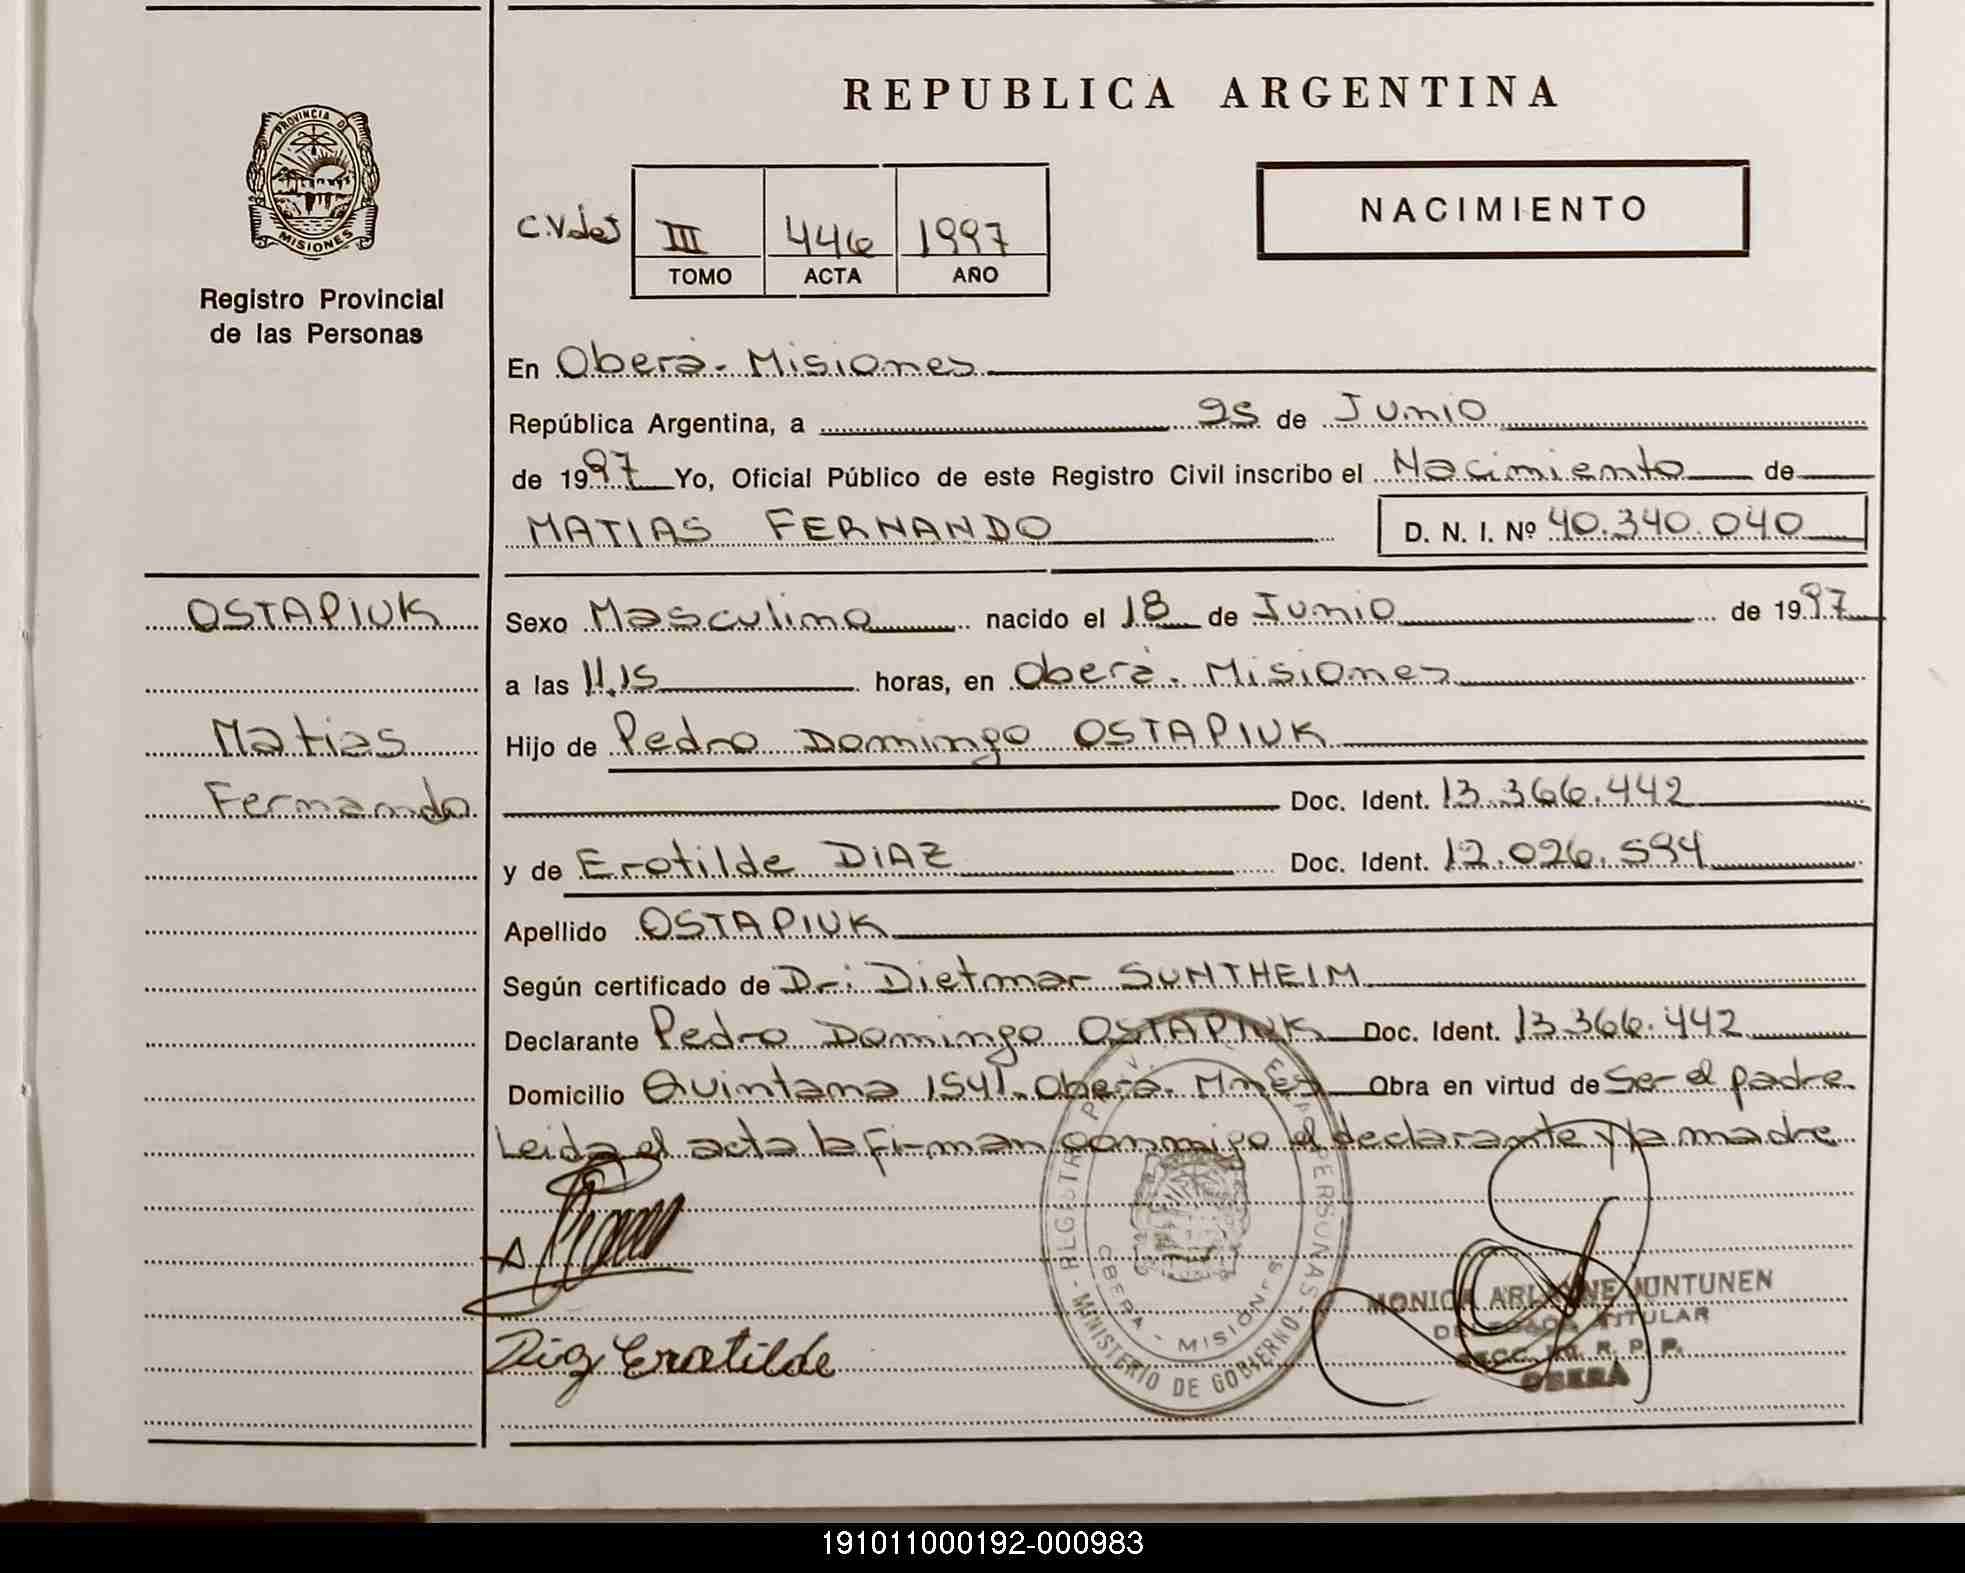 PROVINCIA DE
MISIONES
Registro Provincial
de las Personas
REPUBLICA ARGENTINA
NACIMIENTO
III 446 1997
TOMO ACTA AÑO
En Oberá - Misiones
República Argentina, a 25 de Junio
de 1997 Yo, Oficial Público de este Registro Civil inscribo el Nacimiento de
MATIAS FERNANDO D. N. I. Nº 40.340.040
OSTAPIUK
Matias
Fernando
Sexo Masculino nacido el 18 de Junio de 1997
a las 11.15 horas, en Oberá. Misiones
Hijo de Pedro Domingo OSTAPIUK
Doc. Ident. 13.366.442
y de Erotilde DIAZ Doc. Ident. 12.026.594
Apellido OSTAPIUK
Según certificado de Dr: Dietmar SUNTHEIM
Declarante Pedro Domingo OSTAPIUK Doc. Ident. 13.366.442
Domicilio Quintana 1541. Oberá. Mnes Obra en virtud de Ser el padre
Leida el acta la firman conmigo el declarante y la madre
Diaz Erotilde
PERSONAS
MINISTERIO DE GOBIERNO
OBERA - MISIONES
MONICA JUNTUNEN
TITULAR
R. P. P.
OBERA
191011000192-000983